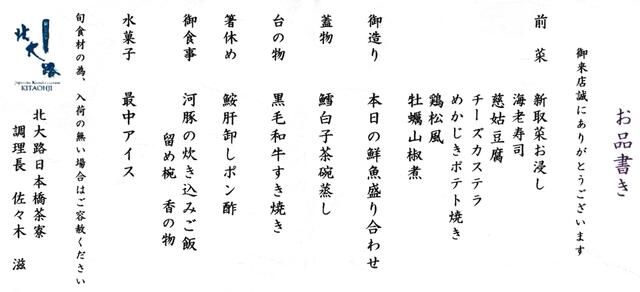 お品書き
御来店誠にありがとうございます
前菜 新取菜お浸し
海老寿司
慈姑豆腐
チーズカステラ
めかじきポテト焼き
鶏松風
牡蠣山椒煮
御造り 本日の鮮魚盛り合わせ
蓋物 鱈白子茶碗蒸し
台の物 黒毛和牛すき焼き
箸休め 鮟肝卸しポン酢
御食事 河豚の炊き込みご飯
留め椀 香の物
水菓子 最中アイス
旬食材の為、入荷の無い場合はご容赦ください
北大路
Japanese Kaiseki Cuisine
KITAOHJI
北大路日本橋茶寮
調理長 佐々木 滋